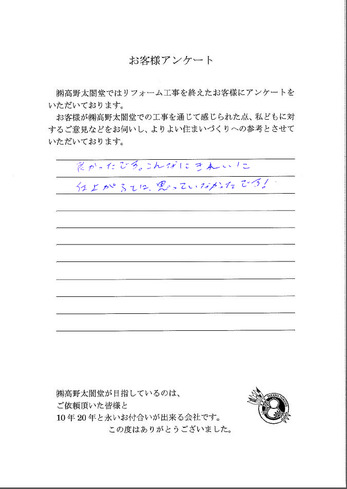 お客様アンケート
㈱高野太閤堂ではリフォーム工事を終えたお客様にアンケートを
いただいております。
お客様が㈱高野太閤堂での工事を通じて感じられた点、私どもに対
するご意見などをお伺いし、よりよい住まいづくりへの参考とさせて
いただいております。
良かったです。こんなにきれいに
仕上がるとは、思っていなかったです!
㈱高野太閤堂が目指しているのは、
ご依頼頂いた皆様と
10年20年と永いお付合いが出来る会社です。
この度はありがとうございました。